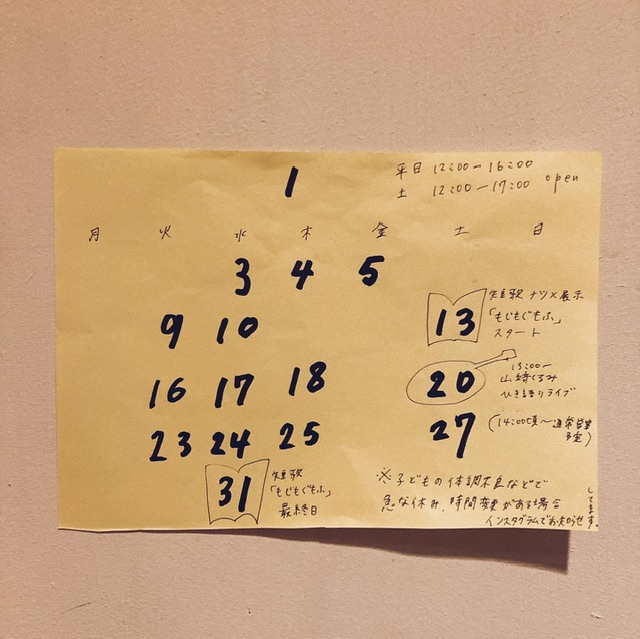 1
平日 12:00-16:00
土 12:00-17:00 open
月 火 水 木 金 土 日
3 4 5
9 10 13
短歌 ナツメ展示
「もじもぐもふ」
スタート
16 17 18 20
13:00〜
山崎くるみ
ひき語りライブ
23 24 25 27
(14:00頃〜通常営業
予定)
31
短歌
「もじもぐもふ」
最終日
※子どもの体調不良などで
急な休み、時間変更がある場合
インスタグラムでお知らせ
してます。